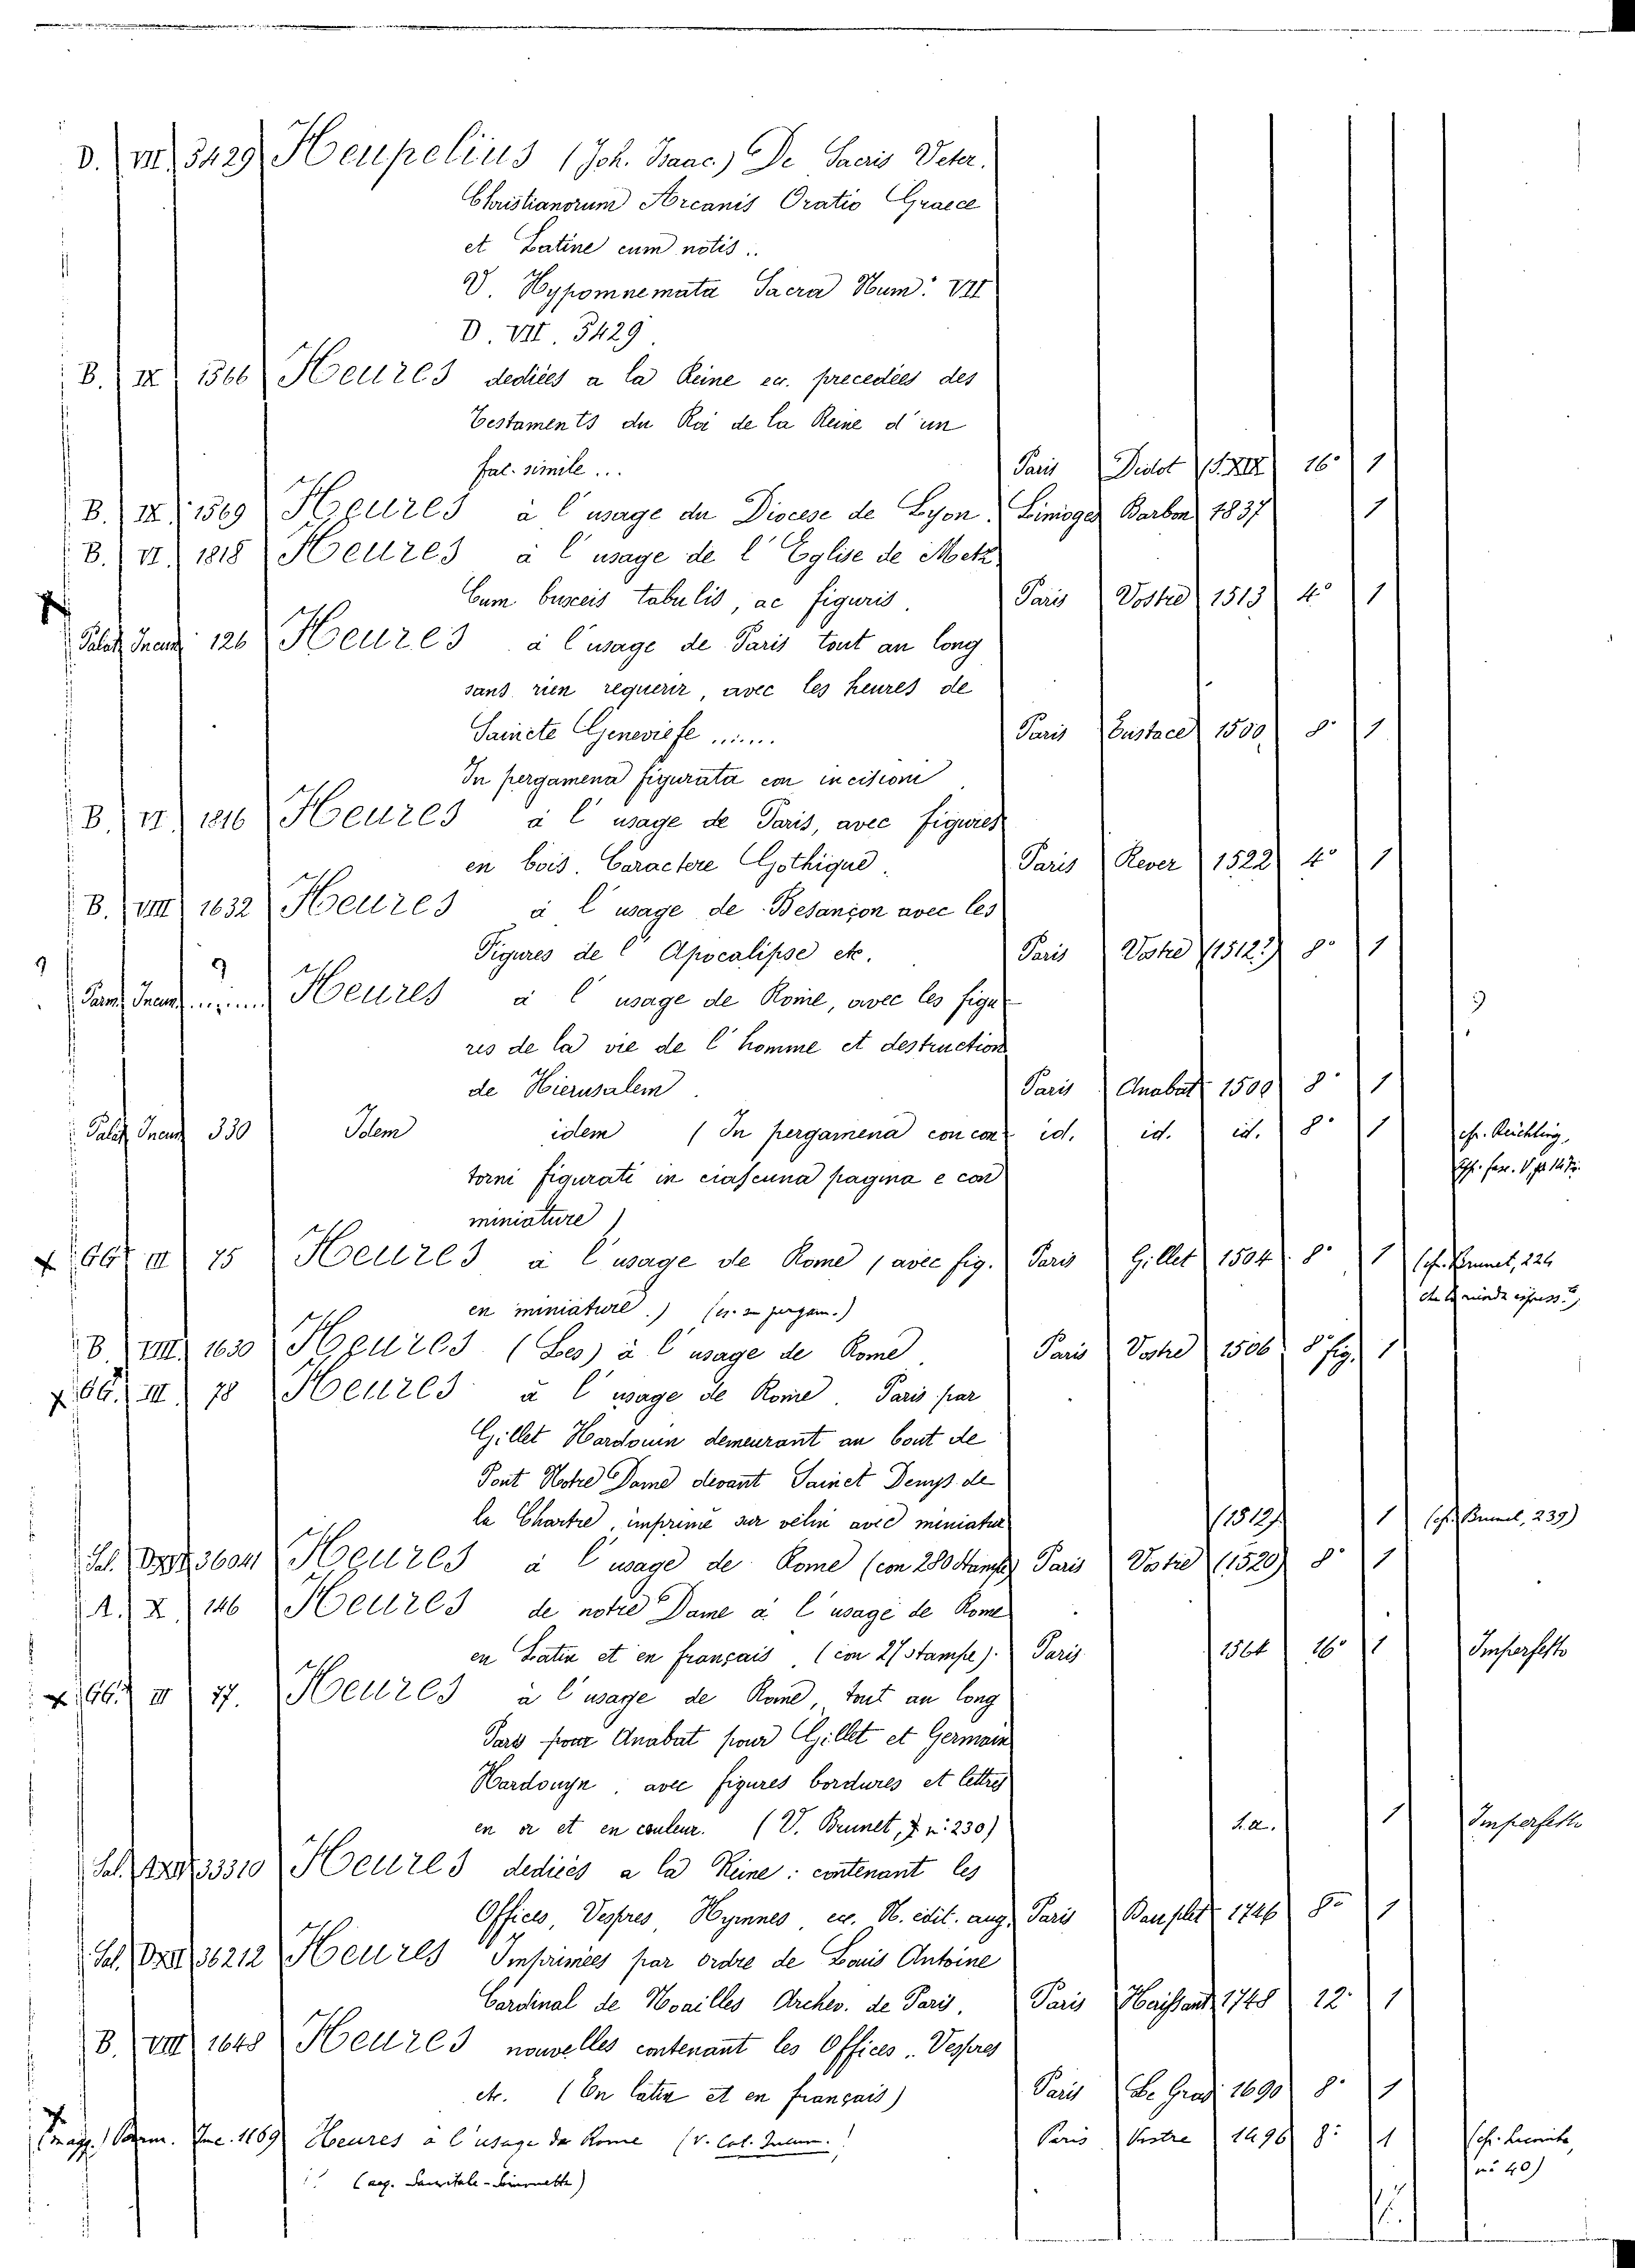 D. VII. 5429 Heupelius (Joh. Isaac.) De Sacris Veter.
Christianorum Arcanis Oratio Graece
et Latine cum notis..
V. Hypomnemata Sacra Num: VII
D. VII. 5429.
B. IX 1566 Heures dediées a la Reine ec. precedées des
Testaments du Roi de la Reine d'un
fal. simile ... Paris Didot (S. XIX) 16° 1
B. IX. 1569 Heures à l'usage du Diocese de Lyon. Limoges Barbon 1837 1
B. VI. 1818 Heures à l'usage de l'Eglise de Metz
Cum buxeis tabulis, ac figuris. Paris Vostre 1513 4° 1
Palat. Incun: 126 Heures à l'usage de Paris tout au long
sans rien requerir, avec les heures de
Saincte Geneviefe ...... Paris Eustace 1500 8° 1
In pergamena figurata con incisioni
B. VI. 1816 Heures à l'usage de Paris, avec figures
en bois. Caractere Gothique. Paris Rever 1522 4° 1
B. VIII 1632 Heures à l'usage de Besançon avec les
Figures de l'Apocalipse etc. Paris Vostre (1512?) 8° 1
? ?
Parm. Incun. Heures à l'usage de Rome, avec les figu- ?
res de la vie de l'homme et destruction
de Hierusalem. Paris Anabat 1500 8° 1
Palat. Incun. 330 Idem idem (In pergamena con con- id. id. id. 8° 1 cfr. Reichling,
torni figurati in ciascuna pagina e con
miniature)
x GG. III 75 Heures à l'usage de Rome (avec fig. Paris Gillet 1504. 8° 1 (cfr. Brunet, 224
en miniature.) (es. in pergam.)
B. VIII. 1630 Heures (Les) à l'usage de Rome. Paris Vostre 1506 8° fig. 1
x GG. III. 78 Heures à l'usage de Rome. Paris par
Gillet Hardouin demeurant au bout de
Pont Notre Dame devant Sainct Denys de
la Chartre, imprimé sur vélin avec miniatur (1512) 1 (cfr. Brunet, 239)
Sal. 3604 Heures à l'usage de Rome (con 280 stampe) Paris Vostre (1520) 8° 1
A. X. 146 Heures de notre Dame à l'usage de Rome
en Latin et en français. (con 27 stampe). Paris 1564 16° 1 Imperfetto
x GG. III 77. Heures à l'usage de Rome, tout au long
Paris pour Anabat pour Gillet et Germain
Hardouyn. avec figures bordures et lettres
en or et en couleur. (V. Brunet, n: 230) s.a. 1 Imperfetto
Sal. 33310 Heures dediées a la Reine: contenant les
Offices, Vespres Hymnes, ec. N. edit. aug. Paris 1746 8° 1
Sal. 36212 Heures Imprimées par ordre de Louis Antoine
Cardinal de Noailles Archev. de Paris. Paris Herissant 1748 12° 1
B. VIII 1648 Heures nouvelles contenant les Offices.. Vespres
etc. (En latin et en français) Paris Le Gras 1690 8° 1
Parm. Inc. 1169 Heures à l'usage de Rome (v. Cat. Incun.! Paris Vostre 1496 8° 1
n° 40)